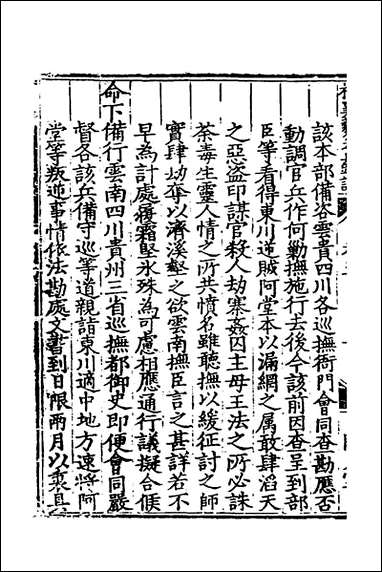 該本部備咨雲貴四川各巡撫衙門會同查勘應否
動調官兵作何勦撫施行去後今該前因查呈到部
臣等看得東川逆賊阿堂本以漏網之屬敢肆滔天
之惡盜印謀官殺人劫寨姦囚主母王法之所必誅
荼毒生靈人情之所共憤名雖聽撫以緩征討之師
實肆劫奪以濟溪壑之欲雲南撫臣言之甚詳若不
早為計處履霜堅氷殊為可慮相應通行議擬合候
命下備行雲南四川貴州三省巡撫都御史即便會同嚴
督各該兵備守巡等道親詣東川適中地方速將阿
堂等叛逆事情依法勘處文書到日限兩月以裏具